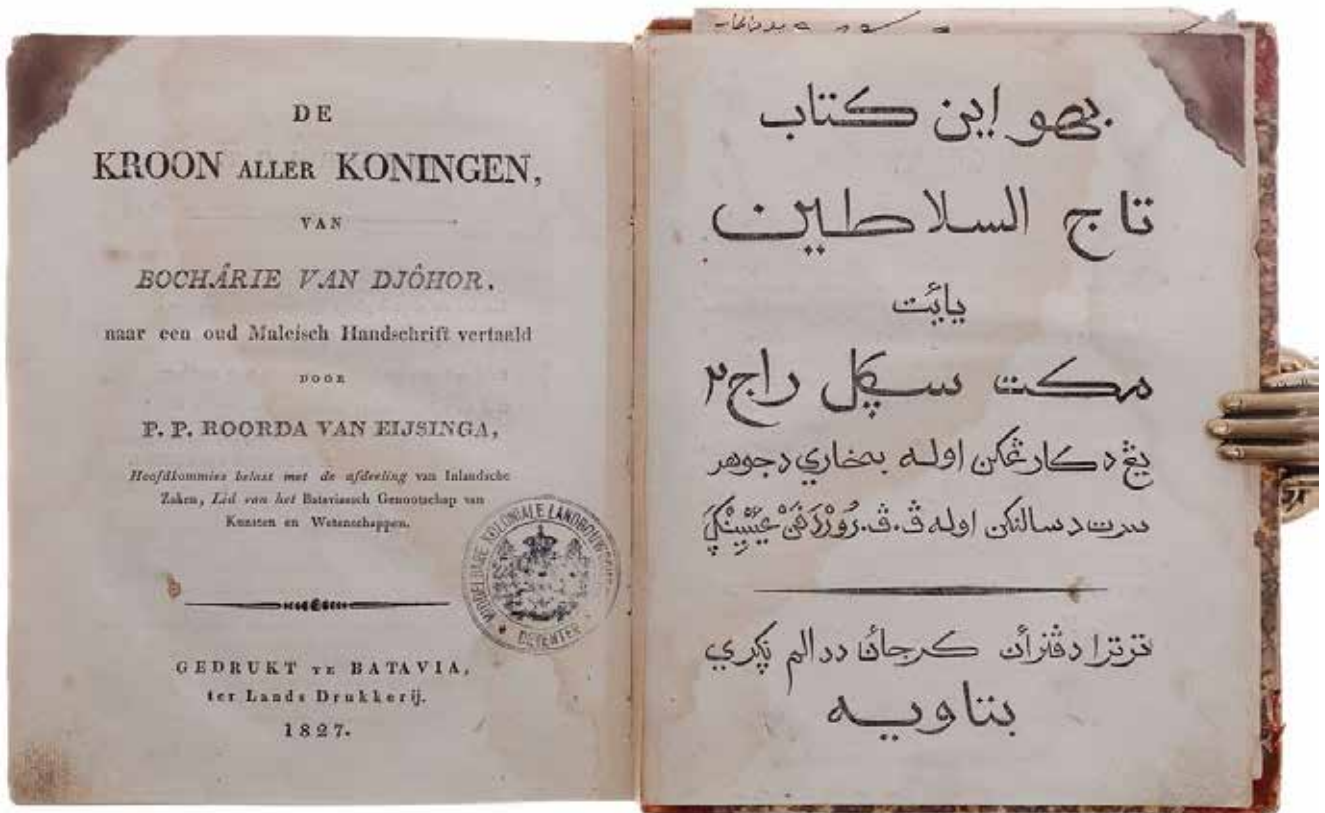 DE
KROON ALLER KONINGEN,
VAN
BOCHÂRIE VAN DJÔHOR.
naar een oud Maleisch Handschrift vertaald
DOOR
P. P. ROORDA VAN EIJSINGA,
Hoofdkommies belast met de afdeeling van Inlandsche
Zaken, Lid van het Bataviaasch Genootschap van
Kunsten en Wetenschappen.
MIDDELBARE KOLONIALE LANDBOUW
DEVENTER
GEDRUKT TE BATAVIA,
ter Lands Drukkerij.
1827.
بهو اين كتاب
تاج السلاطين
يائيت
مكت سݢل راج٢
يڠ دكارڠكن اوله بخاري دجوهر
سرت دسالنكن اوله ڤ. ڤ.
ترترا دڤنرأن كرجاڽ ددالم نݢري
بتاويه